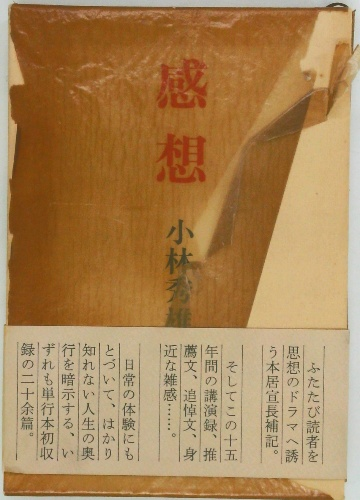 感想
小林秀雄
ふたたび読者を
思想のドラマへ誘
う本居宣長補記。
そしてこの十五
年間の講演録、推
薦文、追悼文、身
近な雑感……。
日常の体験にも
とづいて、はかり
知れない人生の奥
行を暗示する、い
ずれも単行本初収
録の二十余篇。